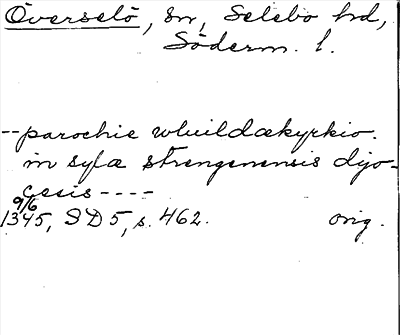 Överselö, sn, Selebo hd,
Söderm. l.
-- parochie whuildækyrkio.
in sylæ strengenensis dyo-
cesis ----
9/6
1345, SD 5, s. 462. orig.